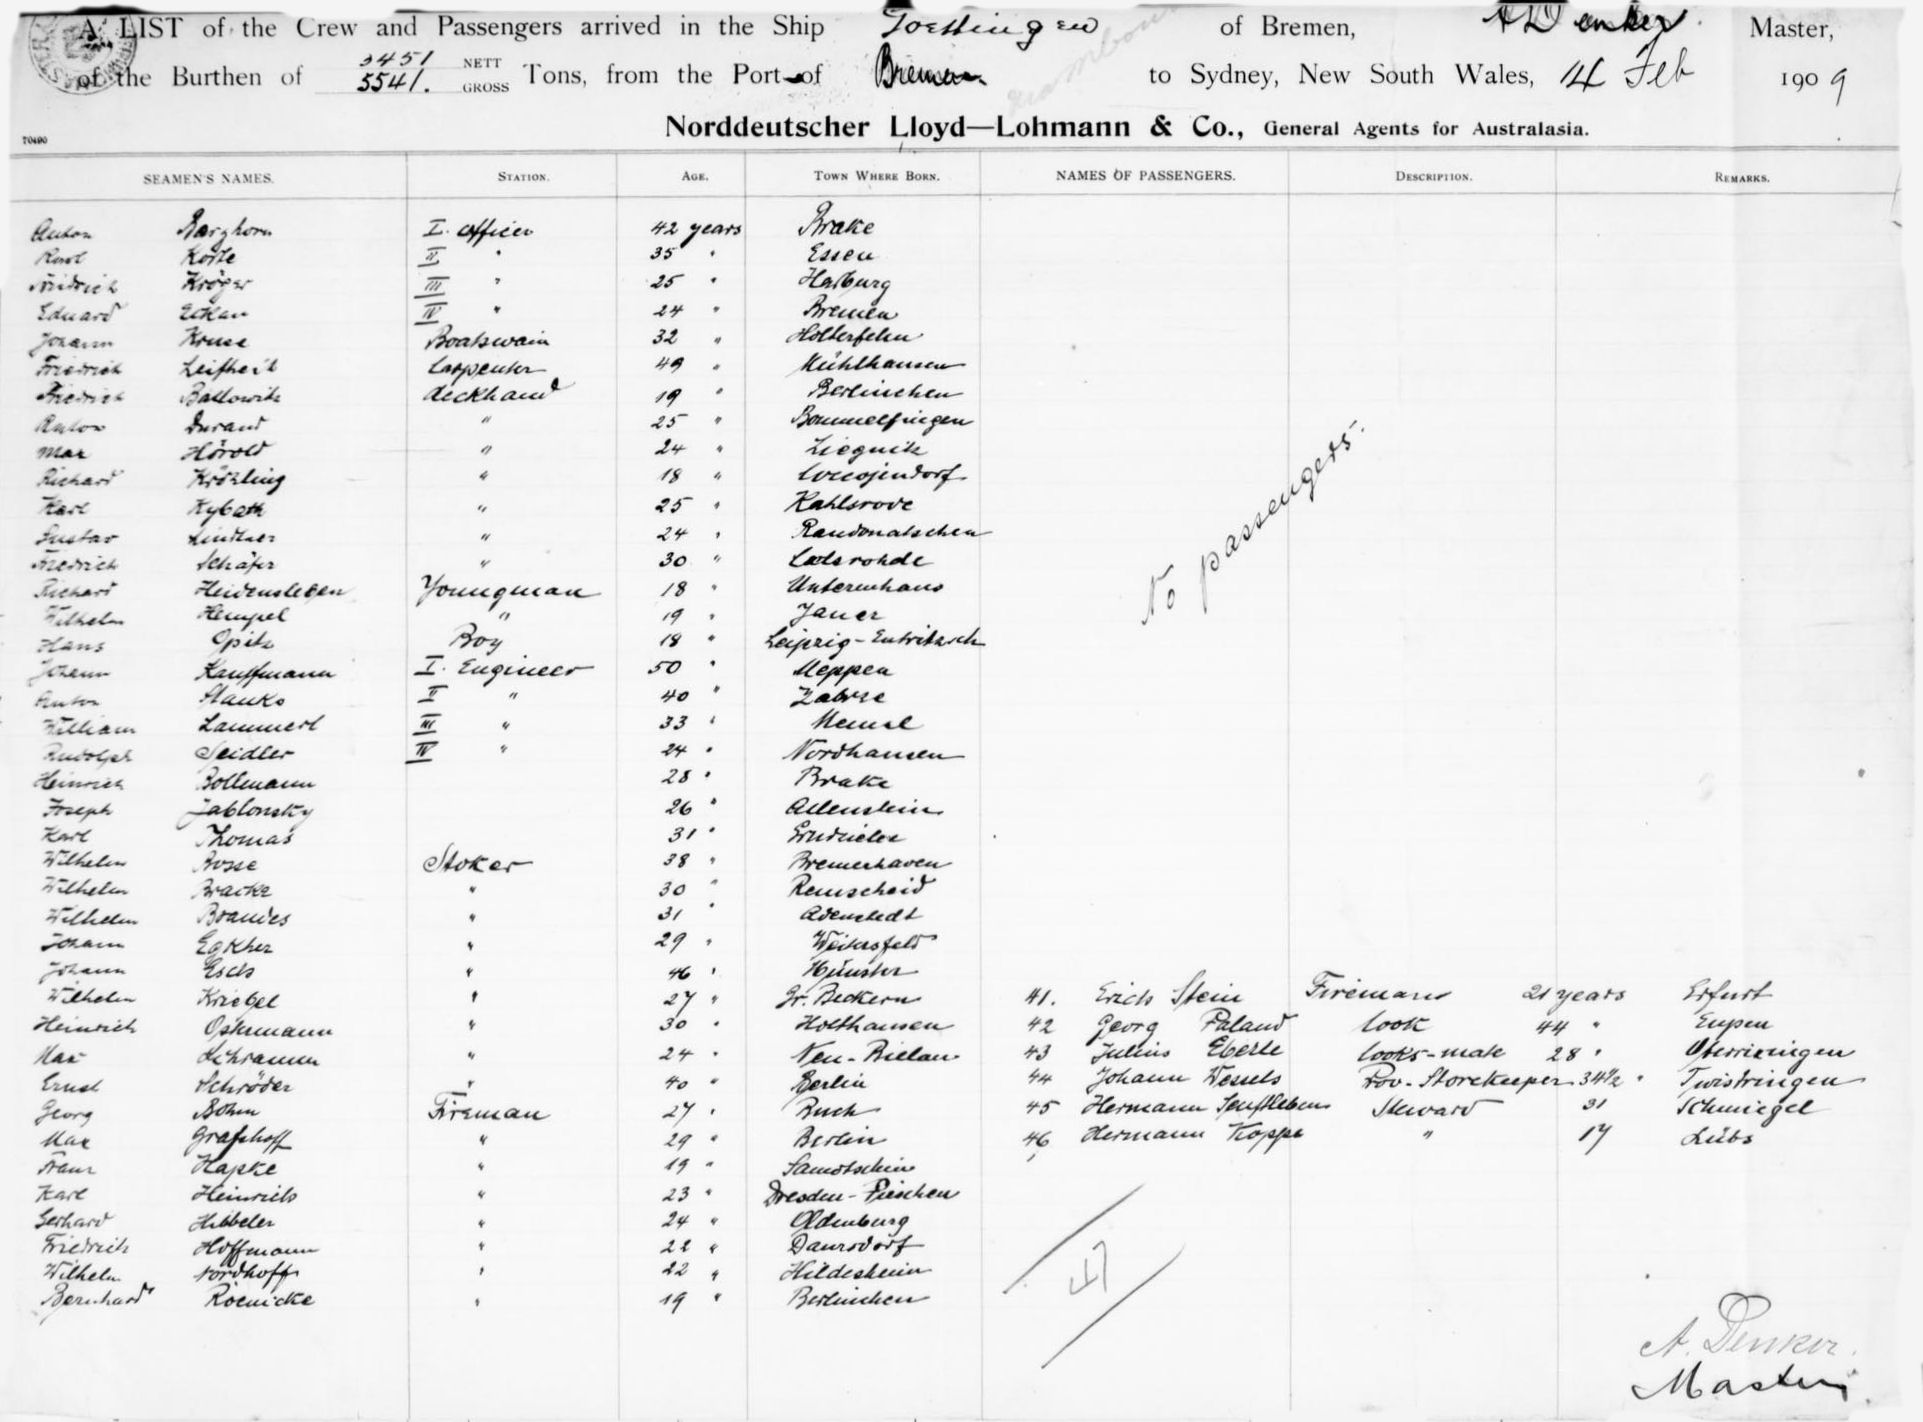 A LIST of the Crew and Passengers arrived in the Ship Goettingen of Bremen, A Denker Master,
of the Burthen of 3451 NETT 5541. GROSS Tons, from the Port of Bremen to Sydney, New South Wales, 14 Feb 1909
Norddeutscher Lloyd—Lohmann & Co., General Agents for Australasia.
70490
SEAMEN'S NAMES. STATION. AGE. TOWN WHERE BORN. NAMES OF PASSENGERS. DESCRIPTION. REMARKS.
Anton Barghorn I. officer 42 years Brake
Karl Korte II " 35 " Essen
Friedrich Kröger III " 25 " Harburg
Eduard IV " 24 " Bremen
Johann Kruse Boatswain 32 " Holterfehn
Friedrich Leifheit Carpenter 49 " Mühlhausen
Friedrich Batlowitz deckhand 19 " Berlinchen
Anton Durand " 25 "
Max Hörold " 24 " Liegnitz
Richard Krösling " 18 "
Karl Kybath " 25 " Kahlsrode
Gustav Lindner " 24 "
Friedrich Schäfer " 30 "
Richard Heidensleben Youngman 18 " Untermhaus
Wilhelm Hempel " 19 " Jauer
Hans Opitz Boy 18 " Leipzig-Eutritzsch
Johann Kauffmann I. Engineer 50 " Meppen
Anton Stanko II " 40 " Zabrze
William Lammert III " 33 " Memel
Rudolph Seidler IV " 24 " Nordhausen
Heinrich Bollmann 28 " Brake
Joseph Jablonsky 26 " Allenstein
Karl Thomas 31 "
Wilhelm Bosse Stoker 38 " Bremerhaven
Wilhelm Bracke " 30 " Remscheid
Wilhelm Brandes " 31 " Adenstedt
Johann Egkher " 29 " Weikersfeld
Johann Esch " 46 " Münster
Wilhelm Kriegel " 27 " Gr. Beckern
Heinrich Ostermann " 30 " Holthausen
Max Schramm " 24 " Neu-Bielau
Ernst Schröder " 40 " Berlin
Georg Böhm Fireman 27 " Buch
Max Grafshoff " 29 " Berlin
Franz Hapke " 19 " Samotschin
Karl Heinrich " 23 " Dresden-Pieschen
Gerhard Hibbeler " 24 " Oldenburg
Friedrich Hoffmann " 22 " Daursdorf
Wilhelm Nordhoff " 22 " Hildesheim
Bernhard Roenicke " 19 " Berlinchen
No passengers.
41. Erich Stein Fireman 21 years Erfurt
42 Georg Paland Cook 44 " Eupen
43 Julius Eberle Cooks-mate 28 " Oberrixingen
44 Johann Wessels Prov. Storekeeper 34½ " Twistringen
45 Hermann Senftleben Steward 31 Schmiegel
46 Hermann Koppe " 17 Lübs
47
A. Denker.
Master.